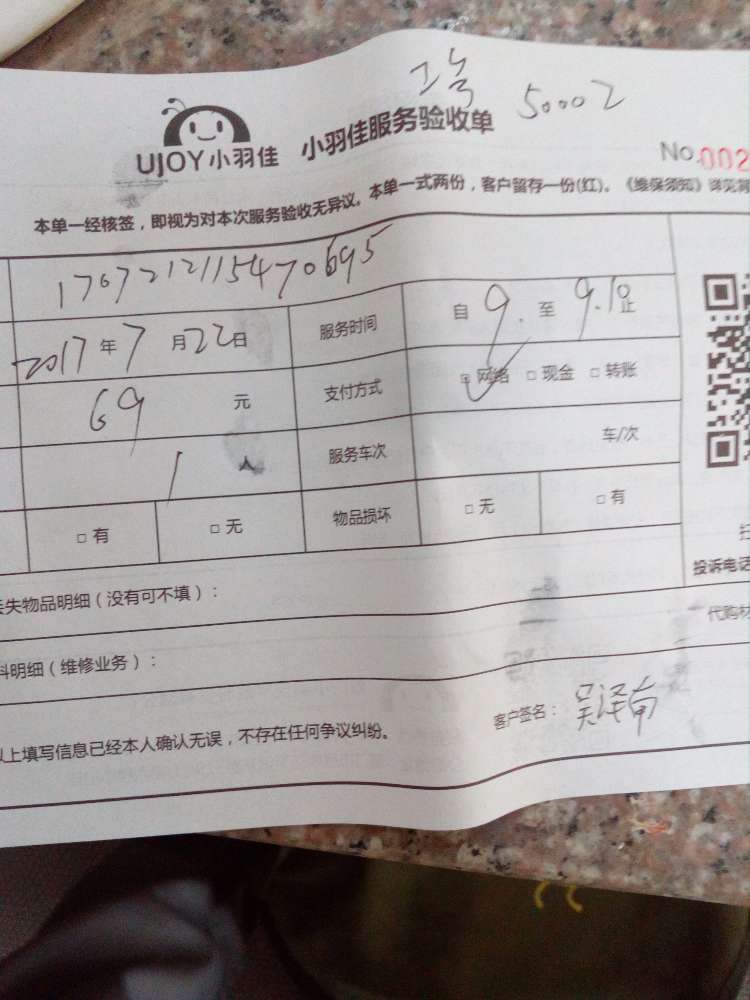 工号 50002
UJOY 小羽佳 小羽佳服务验收单
No.002
本单一经核签，即视为对本次服务验收无异议。本单一式两份，客户留存一份(红)。《维保须知》详见背
17072121115470695
2017年7月22日 服务时间 自9.至9.10止
69元 支付方式 网络 □ 现金 □ 转账
1人 服务车次 车/次
□ 有 □ 无 物品损坏 □ 无 □ 有
失物品明细（没有可不填）：
投诉电话
料明细（维修业务）：
代购材
以上填写信息已经本人确认无误，不存在任何争议纠纷。
客户签名：吴泽南